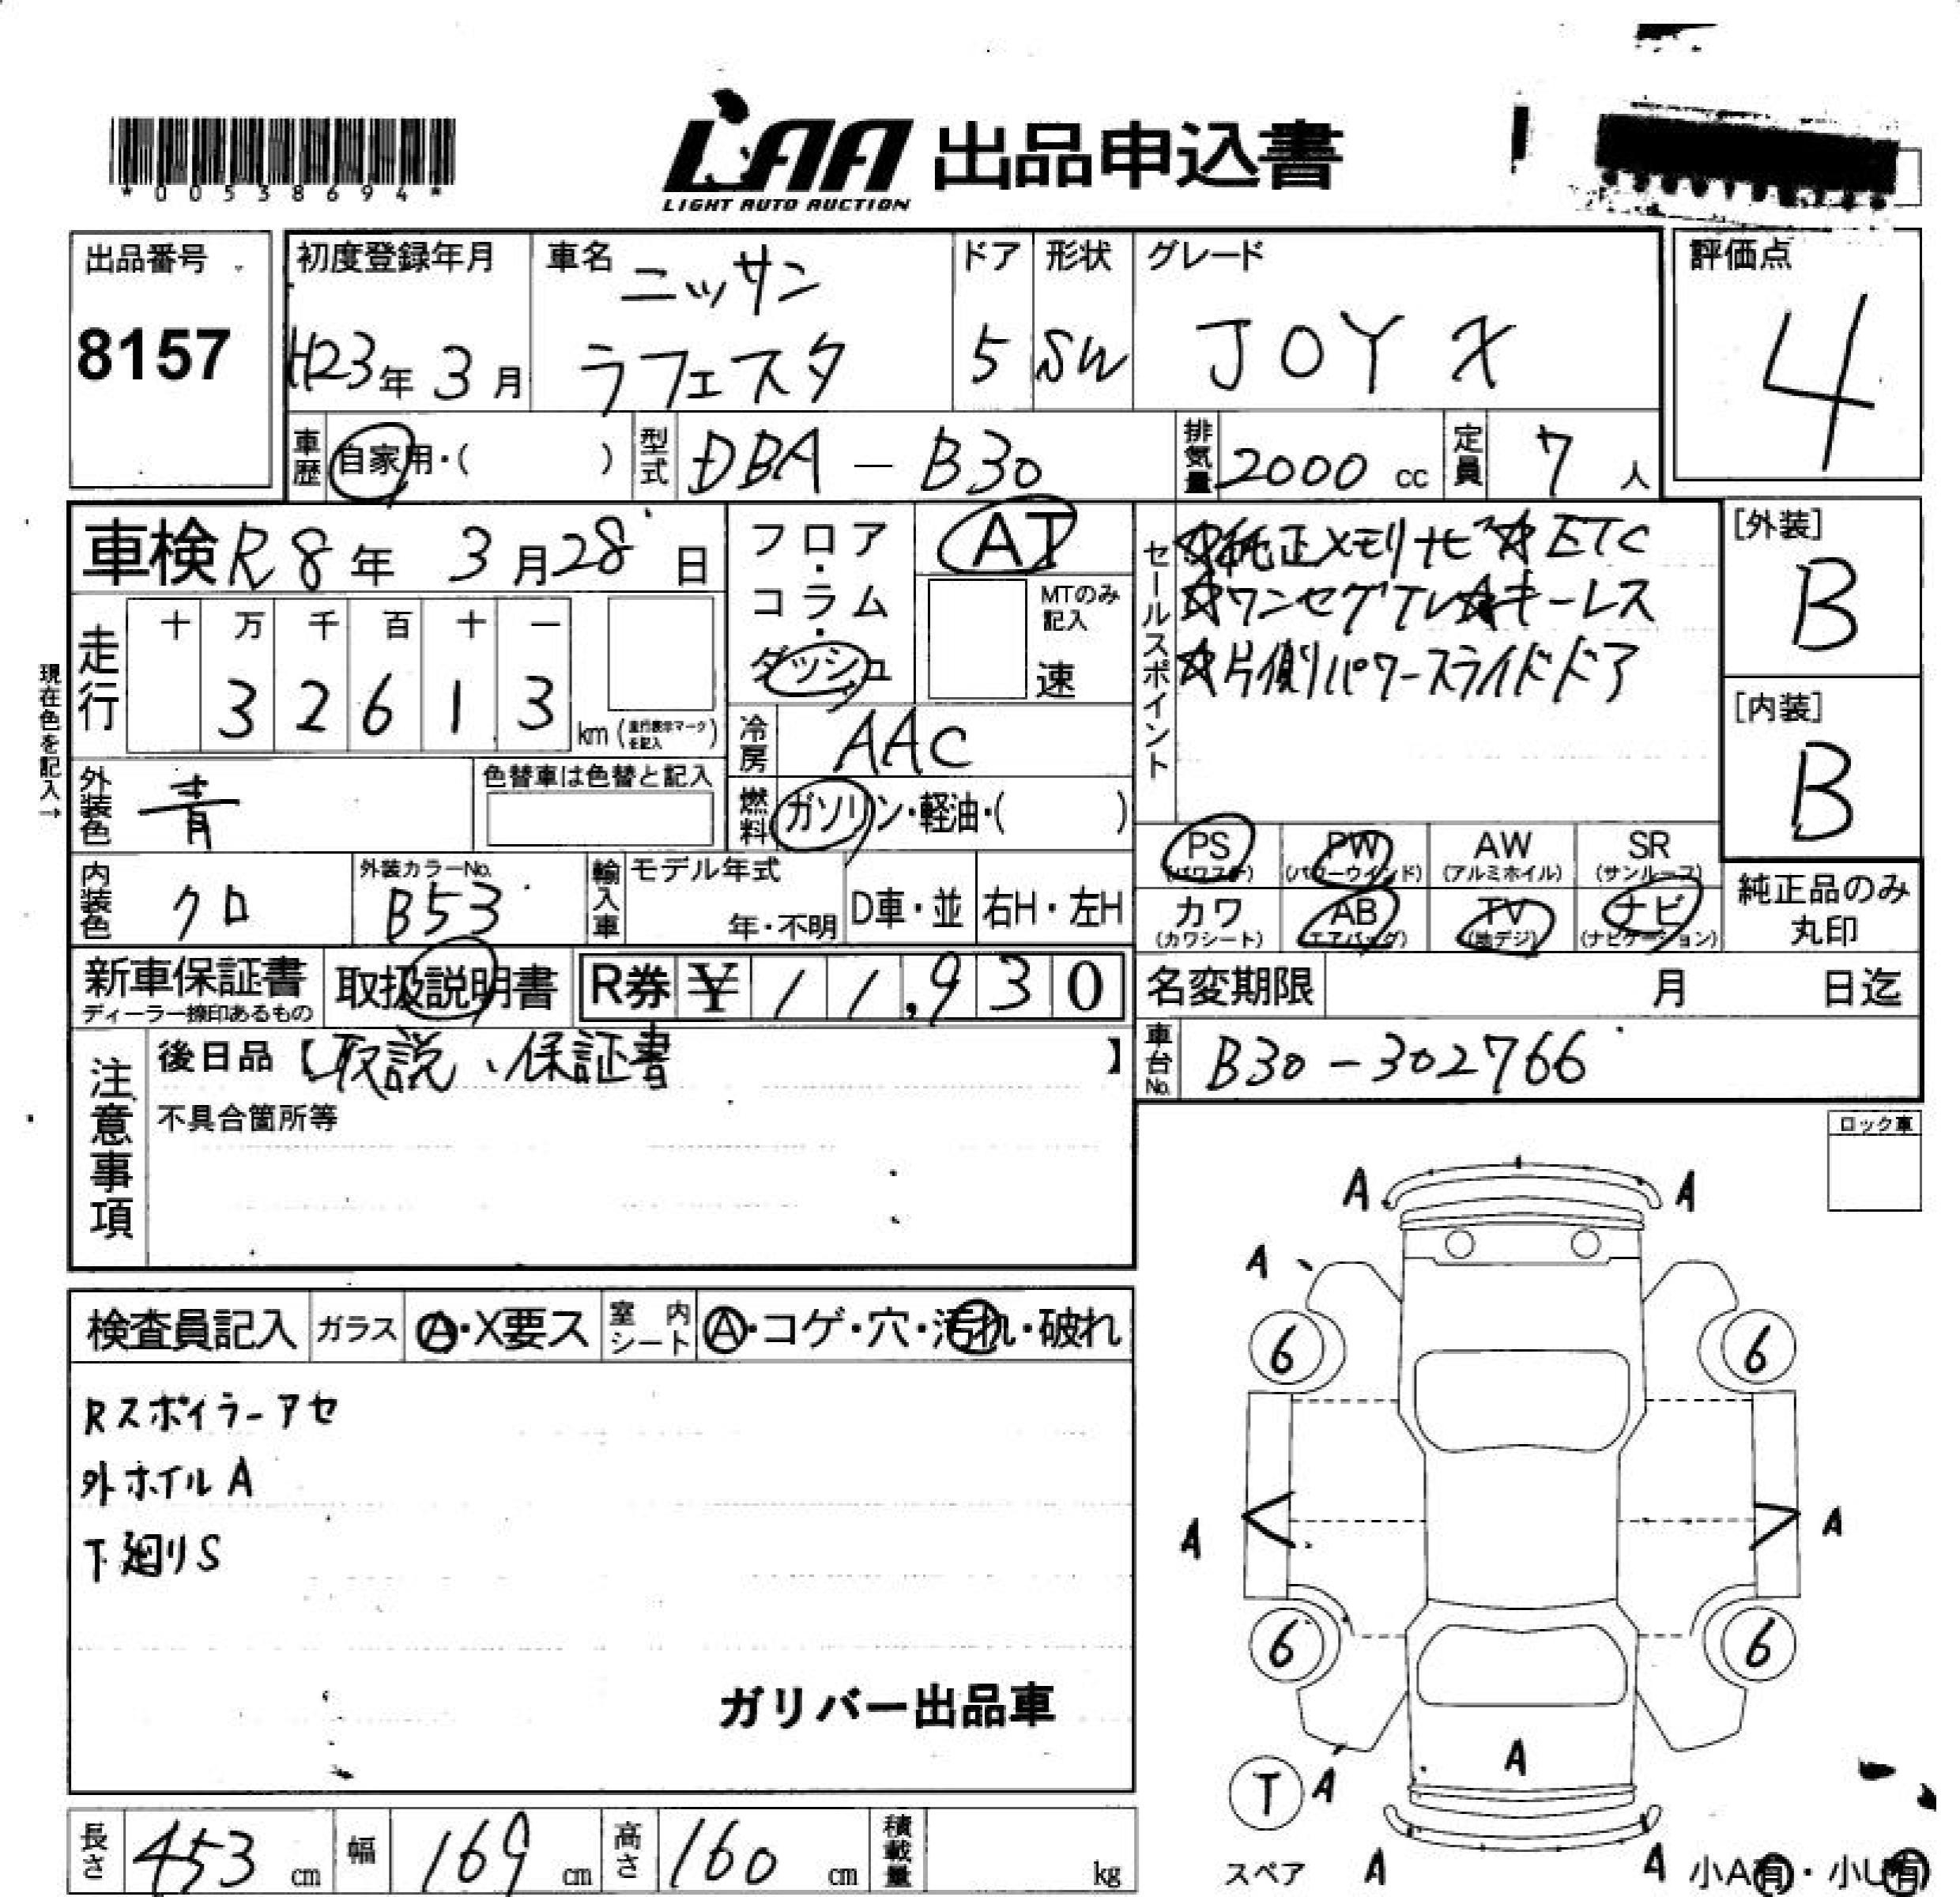 *00538694*
LAA 出品申込書
LIGHT AUTO AUCTION
出品番号
8157
初度登録年月
H23年 3月
車名
ニッサン
ラフェスタ
ドア
5
形状
SW
グレード
JOY X
評価点
4
車歴 自家用・( )
型式 DBA - B30
排気量 2000 cc
定員 7 人
車検 R8年 3月28日
走行
十 万 千 百 十 一
3 2 6 1 3
km (走行表示マークを記入)
現在色を記入→
フロア・コラム・ダッシュ
AT
MTのみ記入
速
冷房 AAC
燃料 ガソリン・軽油・( )
セールスポイント
☆純正メモリナビ ☆ETC
☆ワンセグTV ☆キーレス
☆片側パワースライドドア
[外装]
B
[内装]
B
外装色 青
色替車は色替と記入
内装色 クロ
外装カラーNo.
B53
輸入車
モデル年式
年・不明
D車・並
右H・左H
PS (パワステ)
PW (パワーウインド)
AW (アルミホイル)
SR (サンルーフ)
カワ (カワシート)
AB (エアバッグ)
TV (地デジ)
ナビ (ナビゲーション)
純正品のみ
丸印
新車保証書
ディーラー捺印あるもの
取扱説明書
R券 ¥ 11,930
名変期限 月 日迄
車台No. B30-302766
注意事項
後日品【取説、保証書】
不具合箇所等
ロック車
検査員記入
ガラス A・X要ス
室内シート A・コゲ・穴・汚れ・破れ
Rスポイラーアセ
外ホイルA
下廻りS
ガリバー出品車
A A
A
6 6
A A
6 6
A
T A
スペア
A A
小A有・小U有
長さ 453 cm
幅 169 cm
高さ 160 cm
積載量 kg